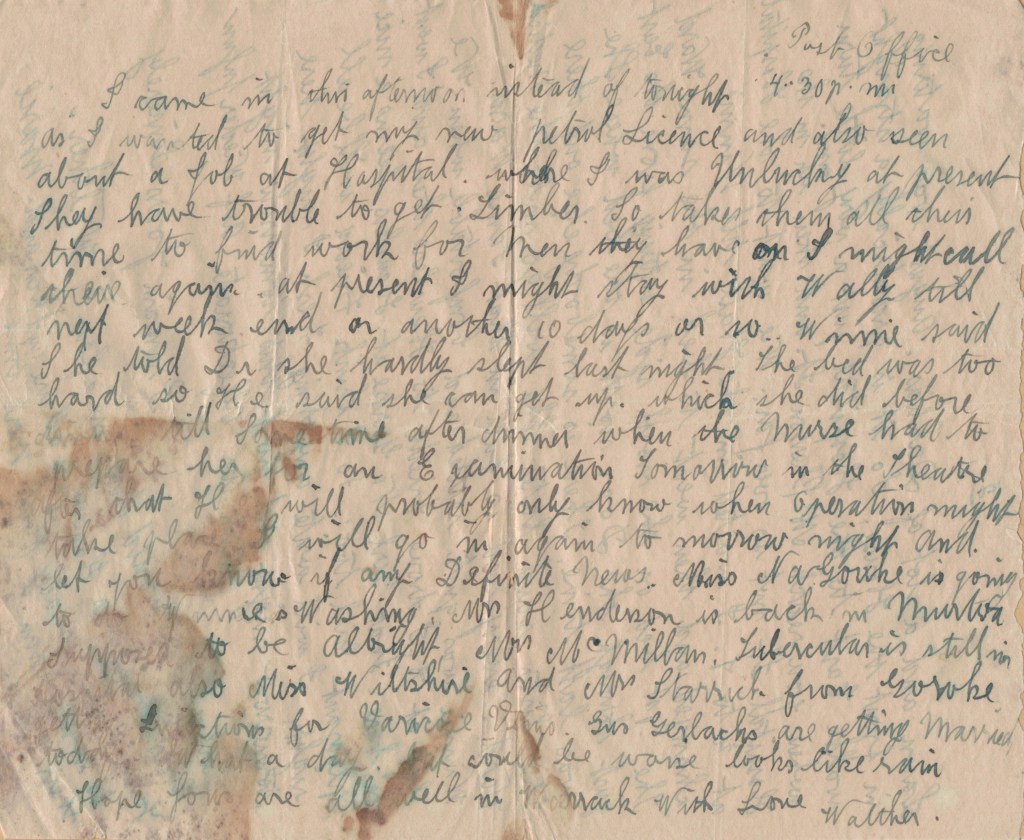 Post Office
4.30 p.m
I came in this afternoon instead of tonight
as I wanted to get my new petrol Licence and also seen
about a Job at Hospital. where I was Unlucky at present
They have trouble to get Timber. So takes them all their
time to find work for Men they have on I might call
their again. at present I might stay with Wally till
next week end or another 10 days or so. Winnie said
She told Dr she hardly slept last night. The bed was too
hard so He said she can get up. which she did before
till Sometime after dinner when the Nurse had to
prepare her for an Examination Tomorrow in the Theatre
for that He will probably only know when Operation might
take place I will go in again to morrow night and.
let you know if any Definite News. Miss is going
to Winnies Washing. Mrs Henderson is back in Murtoa
Supposed to be Albright, Mrs McMillan. Tubercular is still in
also Miss Wiltshire and Mrs Starrick from Goroke
for Varicose Veins. Gus Gerlachs are getting Married
today What a day. but could be worse looks like rain
Hope Yous are All well in With Love Walther.